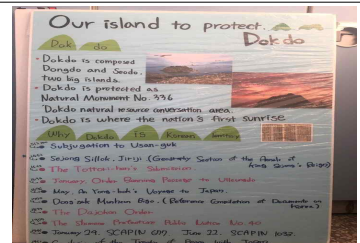 Our island to protect.
Dokdo
Dok do
- Dokdo is composed
Dongdo and Seodo.
two big islands.
- Dokdo is protected as
Natural Monument No. 336
"Dokdo natural resource conversation area.
- Dokdo is where the nation's first sunrise
Why Dokdo Is Korean
Subjugation to Usan-guk
Sejong Sillok, Jiriji (Geography Section of the Annals of King Sejong's Reign)
The Tottori-han's Submission
January Order Banning Passage to Ulleungdo
May, An Yong-bok's Voyage to Japan.
Munheon Bigo. (Reference Compilation of Documents on Korea)
The Dajokan Order.
The Shimane Prefecture Public Notice No. 40
January 29. SCAPIN 677, June 22. SCAPIN 1033
of the Treaty of Peace with Japan